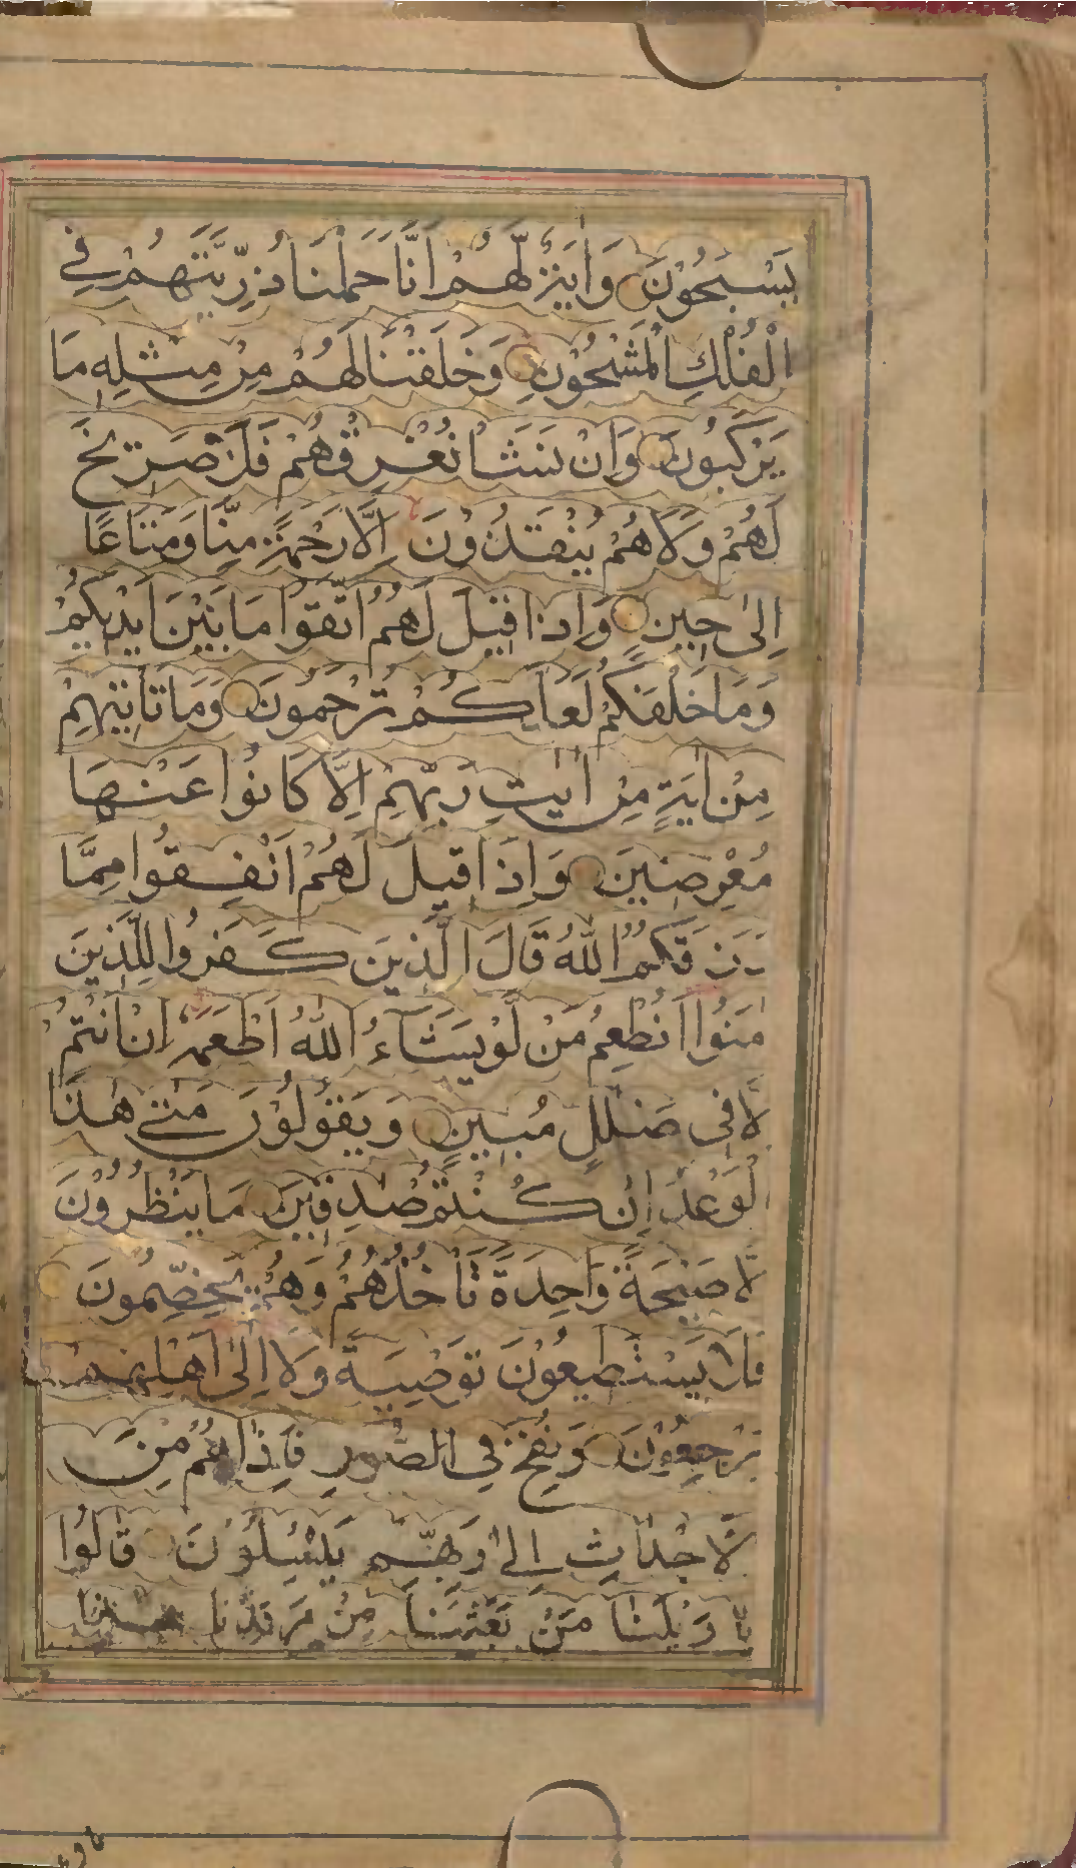 يَسْبَحُوْنَ وَاٰيَةٌ لَّهُمْ اَنَّا حَمَلْنَا ذُرِّيَّتَهُمْ فِي
الْفُلْكِ الْمَشْحُوْنِ وَخَلَقْنَا لَهُمْ مِنْ مِثْلِهٖ مَا
يَرْكَبُوْنَ وَاِنْ نَشَأْ نُغْرِقْهُمْ فَلَا صَرِيْخَ
لَهُمْ وَلَا هُمْ يُنْقَذُوْنَ اِلَّا رَحْمَةً مِنَّا وَمَتَاعًا
اِلٰى حِيْنٍ وَاِذَا قِيْلَ لَهُمُ اتَّقُوْا مَا بَيْنَ اَيْدِيْكُمْ
وَمَا خَلْفَكُمْ لَعَلَّكُمْ تُرْحَمُوْنَ وَمَا تَأْتِيْهِمْ
مِنْ اٰيَةٍ مِنْ اٰيٰتِ رَبِّهِمْ اِلَّا كَانُوْا عَنْهَا
مُعْرِضِيْنَ وَاِذَا قِيْلَ لَهُمْ اَنْفِقُوْا مِمَّا
رَزَقَكُمُ اللّٰهُ قَالَ الَّذِيْنَ كَفَرُوْا لِلَّذِيْنَ
اٰمَنُوْا اَنُطْعِمُ مَنْ لَّوْ يَشَآءُ اللّٰهُ اَطْعَمَهٗ اِنْ اَنْتُمْ
اِلَّا فِى ضَلٰلٍ مُبِيْنٍ وَيَقُوْلُوْنَ مَتٰى هٰذَا
الْوَعْدُ اِنْ كُنْتُمْ صٰدِقِيْنَ مَا يَنْظُرُوْنَ
اِلَّا صَيْحَةً وَاحِدَةً تَأْخُذُهُمْ وَهُمْ يَخِصِّمُوْنَ
فَلَا يَسْتَطِيْعُوْنَ تَوْصِيَةً وَلَا اِلٰى اَهْلِهِمْ
يَرْجِعُوْنَ وَنُفِخَ فِي الصُّوْرِ فَاِذَا هُمْ مِنَ
الْاَجْدَاثِ اِلٰى رَبِّهِمْ يَنْسِلُوْنَ قَالُوْا
يَا وَيْلَنَا مَنْ بَعَثَنَا مِنْ مَرْقَدِنَا هٰذَا